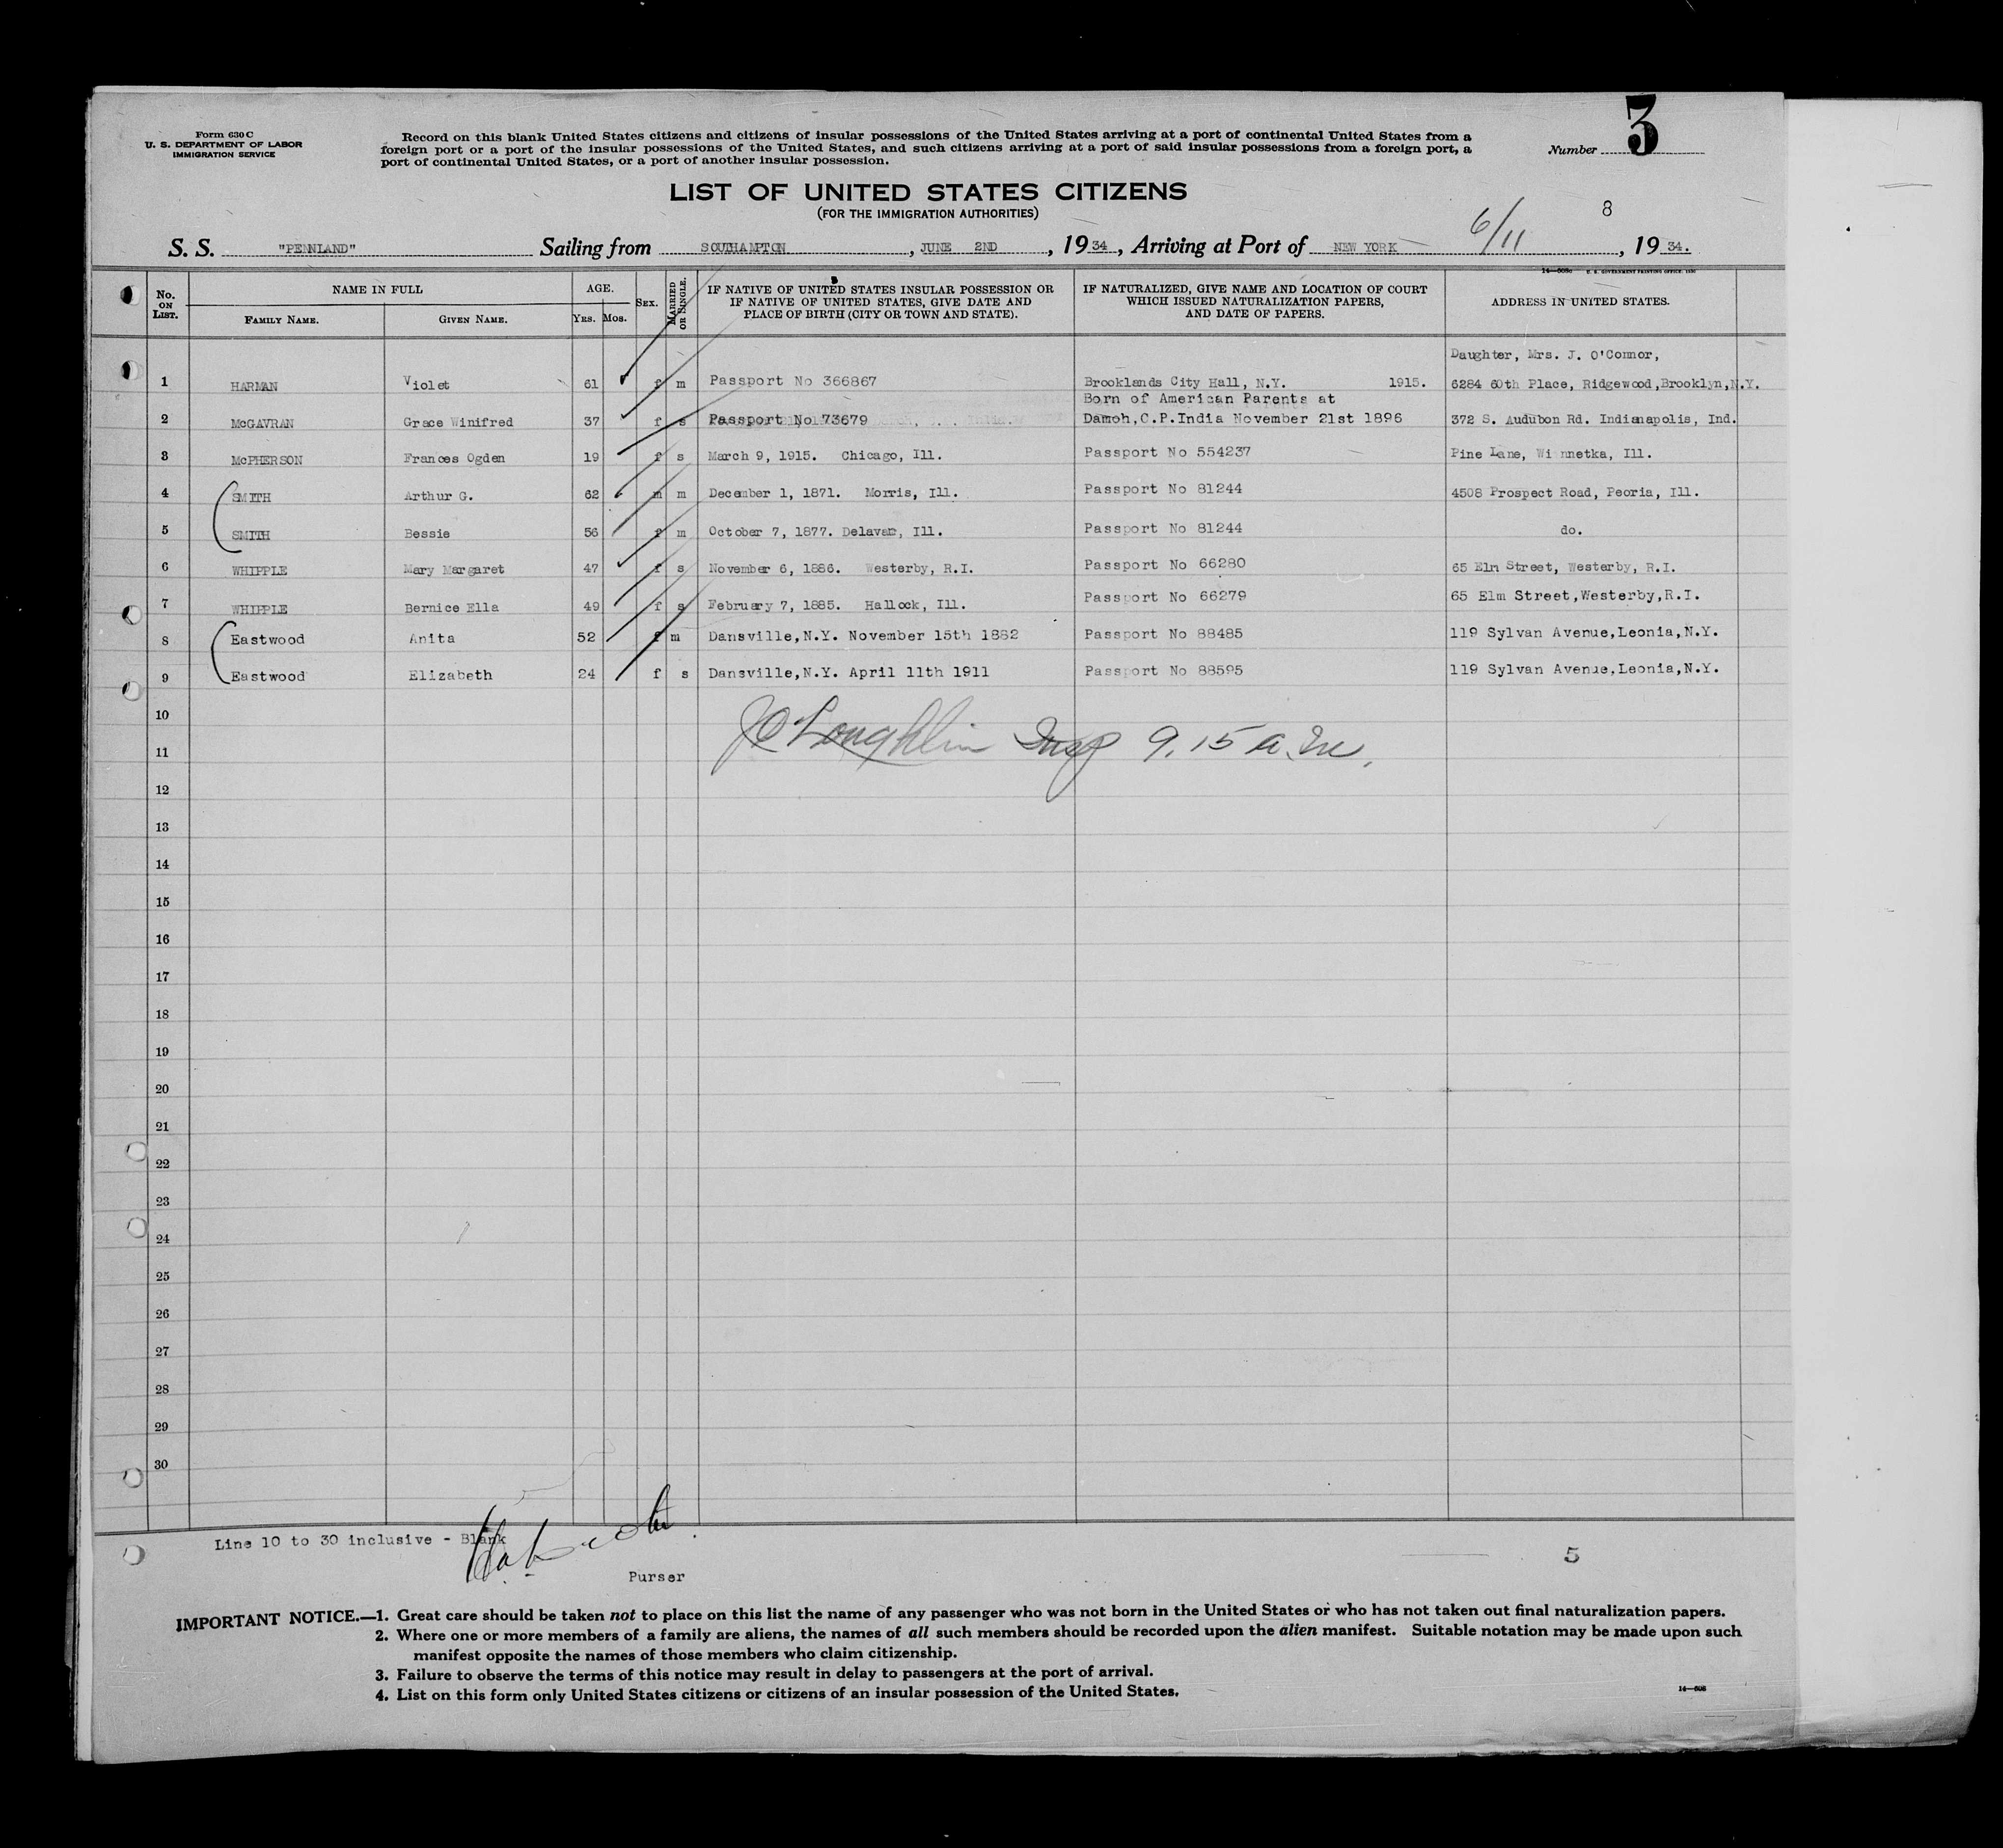 Form 630 C
U. S. DEPARTMENT OF LABOR
IMMIGRATION SERVICE
Record on this blank United States citizens and citizens of insular possessions of the United States arriving at a port of continental United States from a
foreign port or a port of the insular possessions of the United States, and such citizens arriving at a port of said insular possessions from a foreign port, a
port of continental United States, or a port of another insular possession.
Number 3
LIST OF UNITED STATES CITIZENS
(FOR THE IMMIGRATION AUTHORITIES)
8
S. S. "PENNLAND" Sailing from SOUTHAMPTON, JUNE 2ND, 1934, Arriving at Port of NEW YORK 6/11, 1934.
No. ON LIST. NAME IN FULL FAMILY NAME. GIVEN NAME. AGE. YRS. MOS. SEX. MARRIED OR SINGLE. IF NATIVE OF UNITED STATES INSULAR POSSESSION OR IF NATIVE OF UNITED STATES, GIVE DATE AND PLACE OF BIRTH (CITY OR TOWN AND STATE). IF NATURALIZED, GIVE NAME AND LOCATION OF COURT WHICH ISSUED NATURALIZATION PAPERS, AND DATE OF PAPERS. ADDRESS IN UNITED STATES.
Daughter, Mrs. J. O'Connor,
1 HARMAN Violet 61 f m Passport No 366867 Brooklands City Hall, N.Y. 1915. 6284 60th Place, Ridgewood,Brooklyn,N.Y.
Born of American Parents at
2 McGAVRAN Grace Winifred 37 f s Passport No 73679 Damoh,C.P.India November 21st 1896 372 S. Audubon Rd. Indianapolis, Ind.
3 McPHERSON Frances Ogden 19 f s March 9, 1915. Chicago, Ill. Passport No 554237 Pine Lane, Winnetka, Ill.
4 SMITH Arthur G. 62 m m December 1, 1871. Morris, Ill. Passport No 81244 4508 Prospect Road, Peoria, Ill.
5 SMITH Bessie 56 f m October 7, 1877. Delavan, Ill. Passport No 81244 do.
6 WHIPPLE Mary Margaret 47 f s November 6, 1886. Westerby, R.I. Passport No 66280 65 Elm Street, Westerby, R.I.
7 WHIPPLE Bernice Ella 49 f s February 7, 1885. Hallock, Ill. Passport No 66279 65 Elm Street,Westerby,R.I.
8 Eastwood Anita 52 f m Dansville,N.Y. November 15th 1882 Passport No 88485 119 Sylvan Avenue,Leonia,N.Y.
9 Eastwood Elizabeth 24 f s Dansville,N.Y. April 11th 1911 Passport No 88595 119 Sylvan Avenue,Leonia,N.Y.
10
11 Loughlin Insp 9.15 a.m.
12
13
14
15
16
17
18
19
20
21
22
23
24
25
26
27
28
29
30
Line 10 to 30 inclusive - Blank
5
Purser
IMPORTANT NOTICE.—1. Great care should be taken not to place on this list the name of any passenger who was not born in the United States or who has not taken out final naturalization papers.
2. Where one or more members of a family are aliens, the names of all such members should be recorded upon the alien manifest. Suitable notation may be made upon such
manifest opposite the names of those members who claim citizenship.
3. Failure to observe the terms of this notice may result in delay to passengers at the port of arrival.
4. List on this form only United States citizens or citizens of an insular possession of the United States.